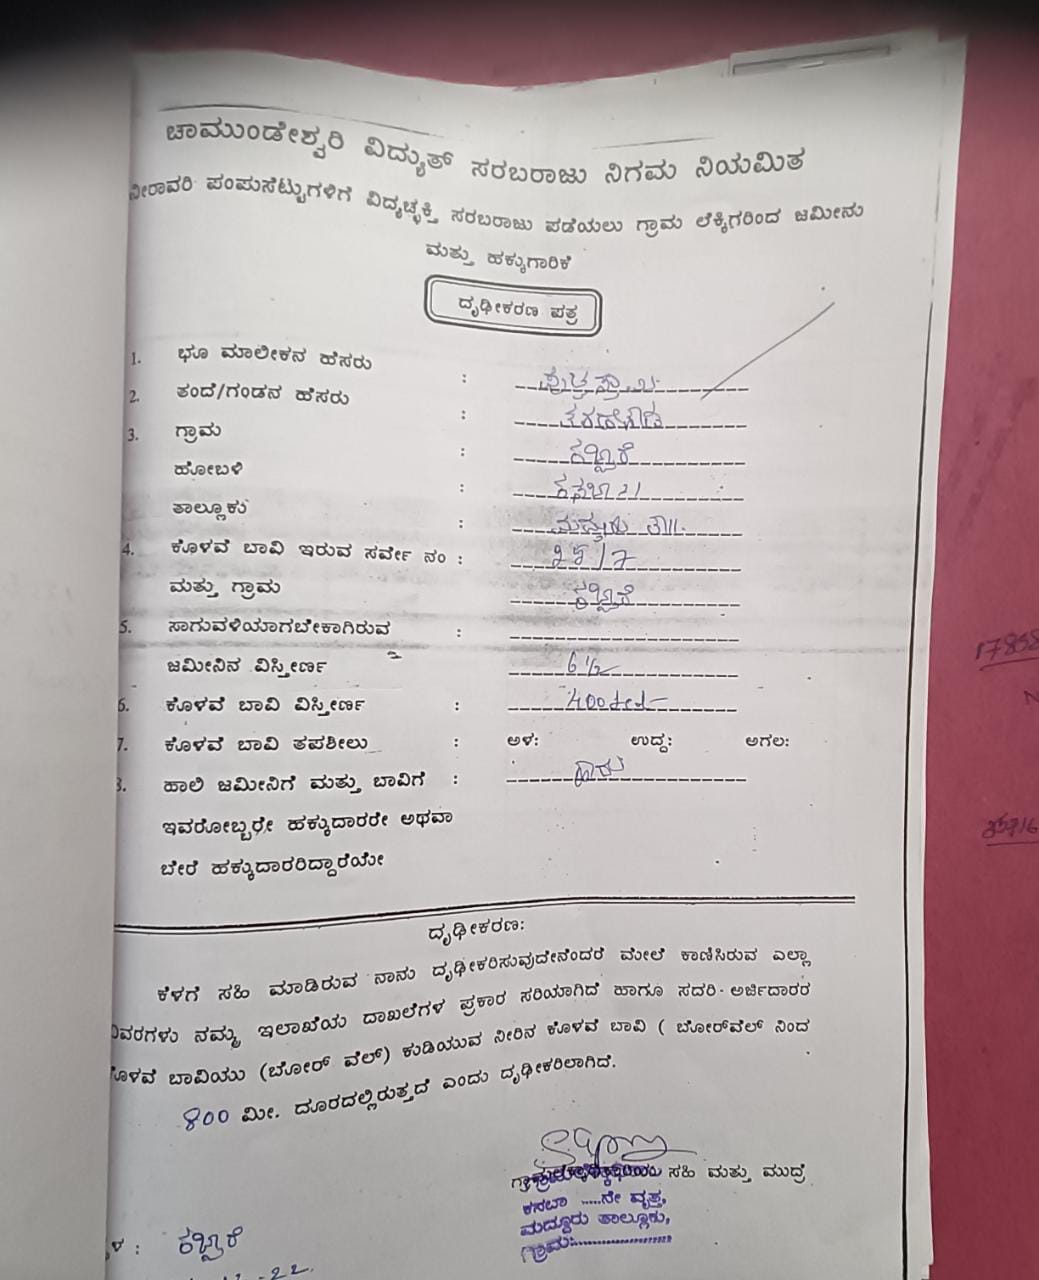 ಚಾಮುಂಡೇಶ್ವರಿ ವಿದ್ಯುತ್ ಸರಬರಾಜು ನಿಗಮ ನಿಯಮಿತ
ನೀರಾವರಿ ಪಂಪುಸೆಟ್ಟುಗಳಿಗೆ ವಿದ್ಯಚ್ಛಕ್ತಿ ಸರಬರಾಜು ಪಡೆಯಲು ಗ್ರಾಮ ಲೆಕ್ಕಿಗರಿಂದ ಜಮೀನು
ಮತ್ತು ಹಕ್ಕುಗಾರಿಕೆ
ದೃಢೀಕರಣ ಪತ್ರ
1. ಭೂ ಮಾಲೀಕನ ಹೆಸರು :
2. ತಂದೆ/ಗಂಡನ ಹೆಸರು :
3. ಗ್ರಾಮ :
ಹೋಬಳಿ :
ತಾಲ್ಲೂಕು :
4. ಕೊಳವೆ ಬಾವಿ ಇರುವ ಸರ್ವೇ ನಂ :
ಮತ್ತು ಗ್ರಾಮ
5. ಸಾಗುವಳಿಯಾಗಬೇಕಾಗಿರುವ :
ಜಮೀನಿನ ವಿಸ್ತೀರ್ಣ 6 1/2
6. ಕೊಳವೆ ಬಾವಿ ವಿಸ್ತೀರ್ಣ : 400
7. ಕೊಳವೆ ಬಾವಿ ತಪಶೀಲು : ಅಳ: ಉದ್ದ: ಅಗಲ:
8. ಹಾಲಿ ಜಮೀನಿಗೆ ಮತ್ತು ಬಾವಿಗೆ : ಹೌದು
ಇವರೋಬ್ಬರೇ ಹಕ್ಕುದಾರರೇ ಅಥವಾ
ಬೇರೆ ಹಕ್ಕುದಾರರಿದ್ದಾರೆಯೇ
ದೃಢೀಕರಣ:
ಕೆಳಗೆ ಸಹಿ ಮಾಡಿರುವ ನಾನು ದೃಢೀಕರಿಸುವುದೇನೆಂದರೆ ಮೇಲೆ ಕಾಣಿಸಿರುವ ಎಲ್ಲಾ
ವಿವರಗಳು ನಮ್ಮ ಇಲಾಖೆಯ ದಾಖಲೆಗಳ ಪ್ರಕಾರ ಸರಿಯಾಗಿದೆ ಹಾಗೂ ಸದರಿ ಅರ್ಜಿದಾರರ
ಕೊಳವೆ ಬಾವಿಯು (ಬೋರ್ ವೆಲ್) ಕುಡಿಯುವ ನೀರಿನ ಕೊಳವೆ ಬಾವಿ ( ಬೋರ್‌ವೆಲ್ ನಿಂದ
800 ಮೀ. ದೂರದಲ್ಲಿರುತ್ತದೆ ಎಂದು ದೃಢೀಕರಿಲಾಗಿದೆ.
ಸಹಿ ಮತ್ತು ಮುದ್ರೆ
ಕಸಬಾ .....ನೇ ವೃತ್ತ,
ಮದ್ದೂರು ತಾಲ್ಲೂಕು,
ಗ್ರಾಮ:......................